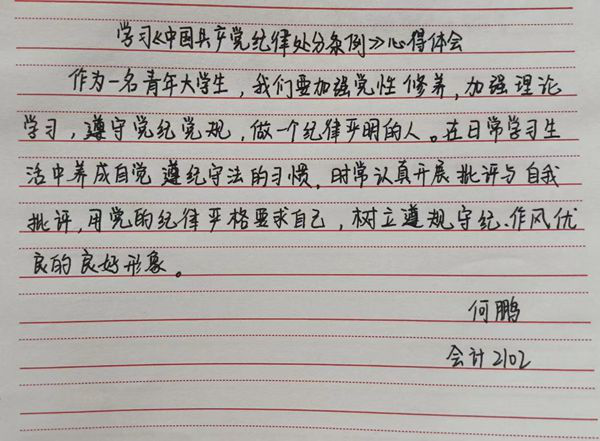 学习《中国共产党纪律处分条例》心得体会
作为一名青年大学生，我们要加强党性修养，加强理论
学习，遵守党纪党规，做一个纪律严明的人。在日常学习生
活中养成自觉遵纪守法的习惯，时常认真开展批评与自我
批评，用党的纪律严格要求自己，树立遵规守纪、作风优
良的良好形象。
何鹏
会计2102